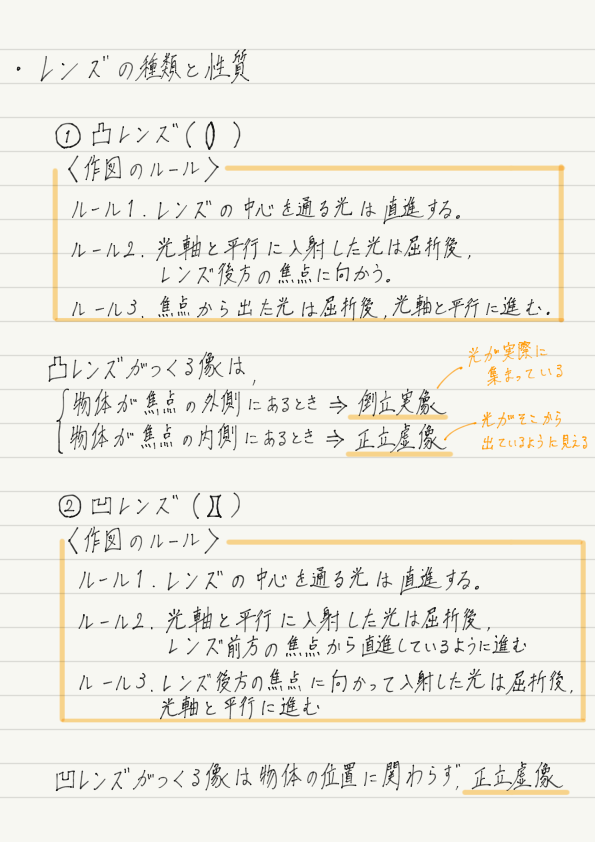 ・レンズの種類と性質
① 凸レンズ ( )
〈作図のルール〉
ルール1. レンズの中心を通る光は直進する。
ルール2. 光軸と平行に入射した光は屈折後,
レンズ後方の焦点に向かう。
ルール3. 焦点から出た光は屈折後,光軸と平行に進む。
凸レンズがつくる像は,
物体が焦点の外側にあるとき ⇒ 倒立実像
光が実際に
集まっている
物体が焦点の内側にあるとき ⇒ 正立虚像
光がそこから
出ているように見える
② 凹レンズ ( )
〈作図のルール〉
ルール1. レンズの中心を通る光は直進する。
ルール2. 光軸と平行に入射した光は屈折後,
レンズ前方の焦点から直進しているように進む
ルール3. レンズ後方の焦点に向かって入射した光は屈折後,
光軸と平行に進む
凹レンズがつくる像は物体の位置に関わらず,正立虚像